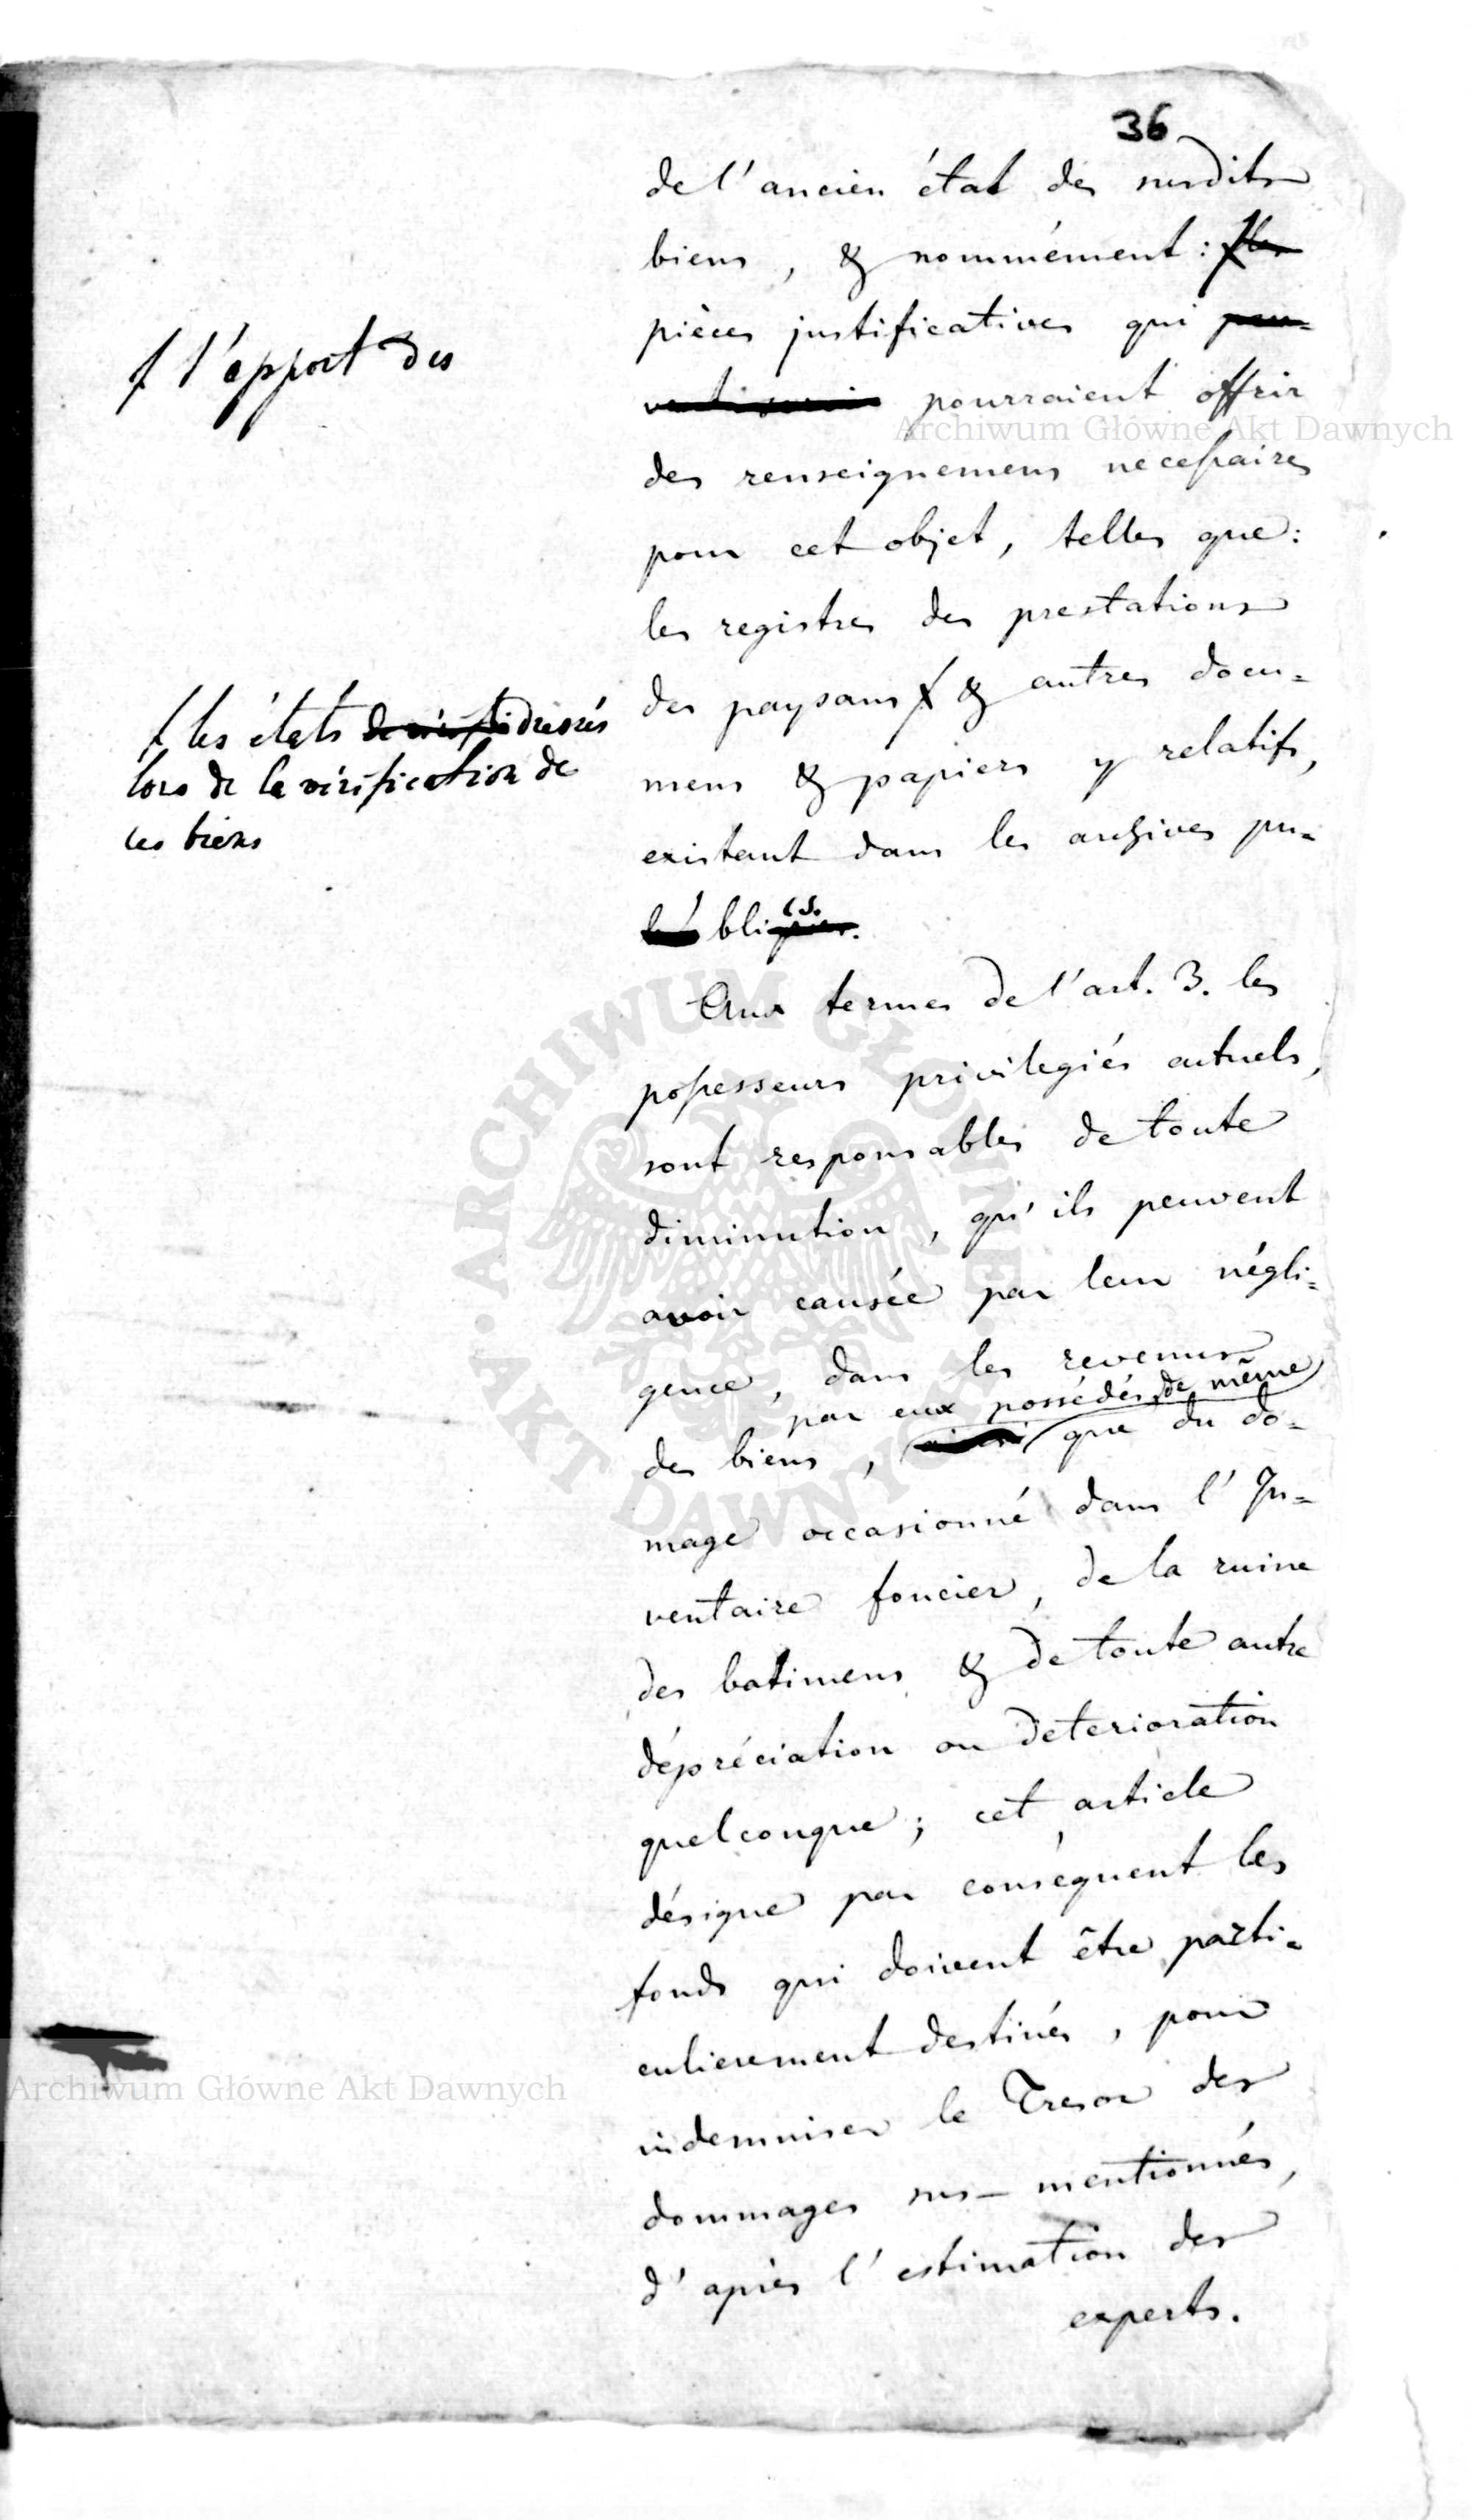 36
de l'ancien état des susdits
biens, & nommément : les
pièces justificatives qui peu-
pourraient offrir
des renseignemens necessaires
pour cet objet, telles que:
les registres des prestations
des paysans ƒ & autres docu-
mens & papiers y relatifs,
existant dans les archives pu-
bliques.
cs.
Aux termes de l'art. 3. les
possesseurs privilegiés actuels,
sont responsables de toute
diminution, qu'ils peuvent
avoir causée par leur négli-
gence, dans les revenus
par eux possédés, de même
des biens, ainsi que du do-
mage occasionné dans l'In-
ventaire foncier, de la ruine
des batimens & de toute autre
dépréciation ou deterioration
quelconque; cet article
désigne par conséquent les
fonds qui doivent être parti-
culierement destinés, pour
indemniser le Tresor des
dommages sus-mentionnés,
d'après l'estimation des
experts.
ƒ l'apport des
ƒ les états de vérifi dressés
lors de la vérification de
ces biens
Archiwum Główne Akt Dawnych
ARCHIWUM GŁÓWNE • AKT DAWNYCH •
Archiwum Główne Akt Dawnych